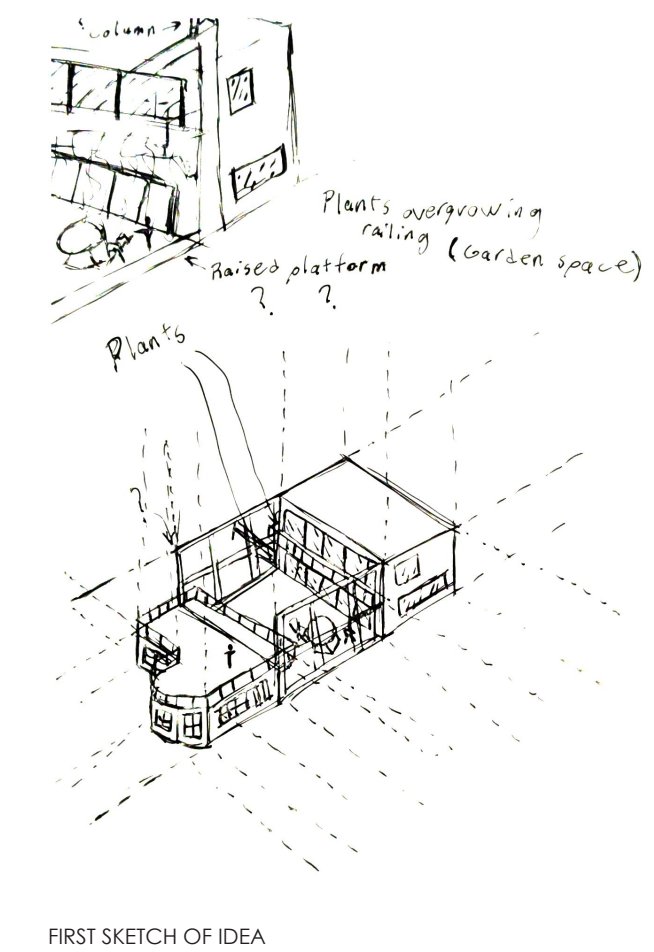 Column →
Plants overgrowing
railing (Garden space)
Raised platform
? ?
Plants
?
FIRST SKETCH OF IDEA